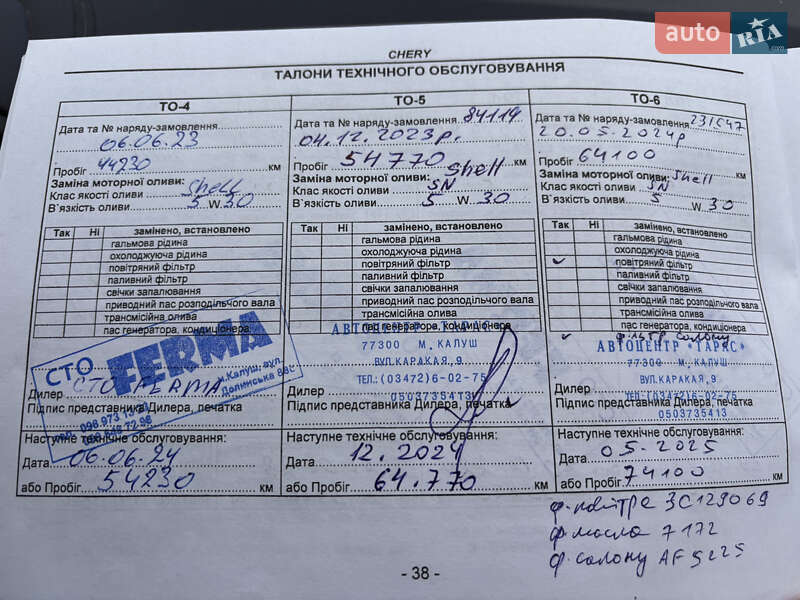 auto RIA
.com
CHERY
ТАЛОНИ ТЕХНІЧНОГО ОБСЛУГОВУВАННЯ
ТО-4
Дата та № наряду-замовлення
06.06.23
Пробіг 44230 км
Заміна моторної оливи: Shell
Клас якості оливи
В`язкість оливи 5 W 30
Так Ні замінено, встановлено
гальмова рідина
охолоджуюча рідина
повітряний фільтр
паливний фільтр
свічки запалювання
приводний пас розподільчого вала
трансмісійна олива
пас генератора, кондиціонера
СТО FERMA
м.Калуш, вул.
Долинська
Дилер СТО FERMA
Підпис представника Дилера, печатка
Наступне технічне обслуговування:
Дата 06.06.24
або Пробіг 54230 км
ТО-5
Дата та № наряду-замовлення 84119
04.12.2023р.
Пробіг 54770 км
Заміна моторної оливи: Shell
Клас якості оливи SN
В`язкість оливи 5 W 30
Так Ні замінено, встановлено
гальмова рідина
охолоджуюча рідина
повітряний фільтр
паливний фільтр
свічки запалювання
приводний пас розподільчого вала
трансмісійна олива
пас генератора, кондиціонера
АВТОЦЕНТР "ТАРАС"
77300 М.КАЛУШ
ВУЛ.КАРАКАЯ,9
ТЕЛ:(03472)6-02-75
0503735413
Дилер
Підпис представника Дилера, печатка
Наступне технічне обслуговування:
Дата 12.2024
або Пробіг 64.770 км
ТО-6
Дата та № наряду-замовлення
20.05-2024р
Пробіг 64100 км
Заміна моторної оливи: Shell
Клас якості оливи SN
В`язкість оливи 5 W 30
Так Ні замінено, встановлено
гальмова рідина
охолоджуюча рідина
повітряний фільтр
паливний фільтр
свічки запалювання
приводний пас розподільчого вала
трансмісійна олива
пас генератора, кондиціонера
фільтр салону
АВТОЦЕНТР "ТАРАС"
77300 М.КАЛУШ
ВУЛ.КАРАКАЯ,9
ТЕЛ:(03472)6-02-75
0503735413
Дилер
Підпис представника Дилера, печатка
Наступне технічне обслуговування:
Дата 05-2025
або Пробіг 74100 км
ф.повітра 3C129069
ф.масла 7172
ф.салону AF5225
- 38 -